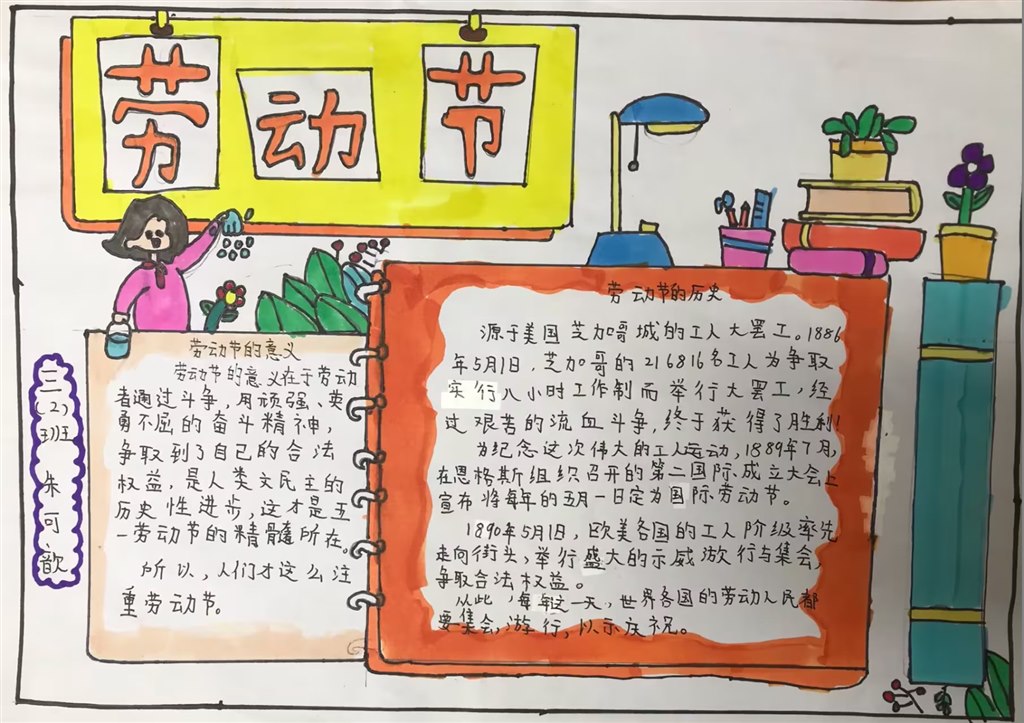 劳动节
劳动节的意义
劳动节的意义在于劳动
者通过斗争，用顽强、英
勇不屈的奋斗精神，
争取到了自己的合法
权益，是人类文民主的
历史性进步，这才是五
一劳动节的精髓所在。
所以，人们才这么注
重劳动节。
三(2)班 朱可歆
劳动节的历史
源于美国芝加哥城的工人大罢工。1886
年5月1日，芝加哥的216816名工人为争取
实行八小时工作制而举行大罢工，经
过艰苦的流血斗争，终于获得了胜利！
为纪念这次伟大的工人运动，1889年7月，
在恩格斯组织召开的第二国际成立大会上
宣布将每年的五月一日定为国际劳动节。
1890年5月1日，欧美各国的工人阶级率先
走向街头，举行盛大的示威游行与集会，
争取合法权益。
从此，每年这一天，世界各国的劳动人民都
要集会，游行，以示庆祝。